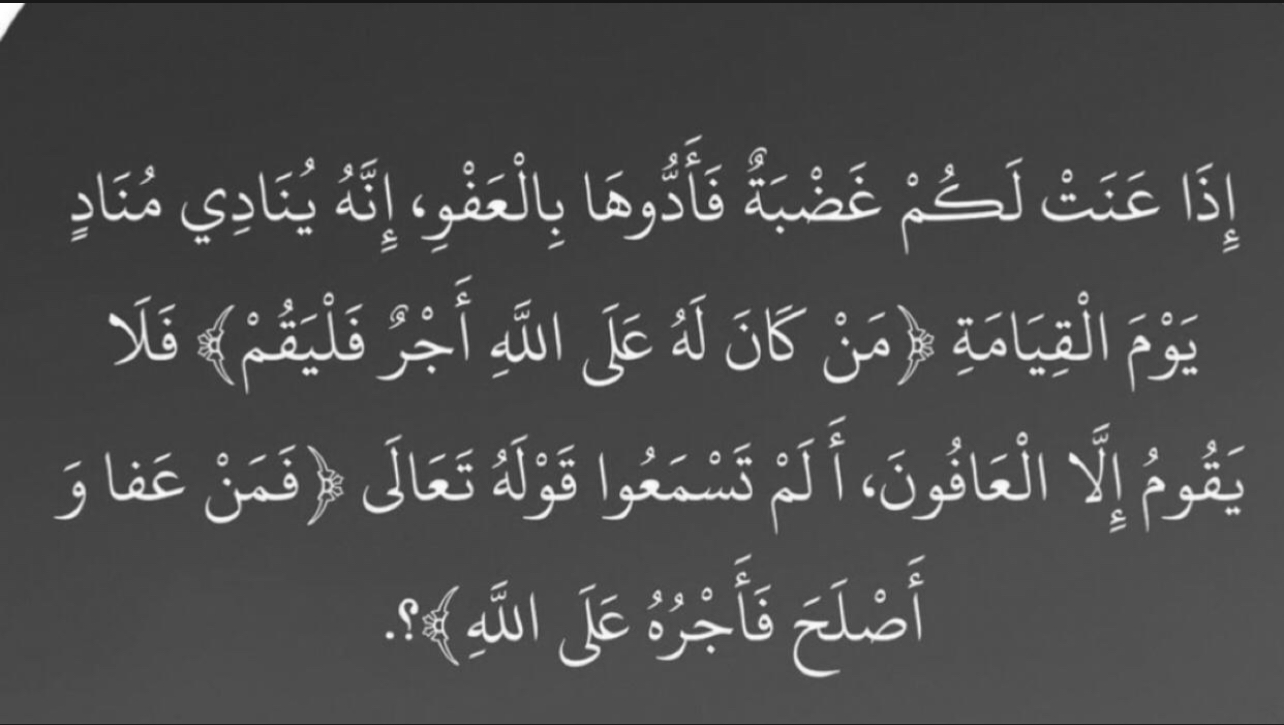 إِذَا عَنَتْ لَكُمْ غَضْبَةٌ فَأَدُّوهَا بِالْعَفْوِ، إِنَّهُ يُنَادِي مُنَادٍ
يَوْمَ الْقِيَامَةِ ﴿مَنْ كَانَ لَهُ عَلَى اللَّهِ أَجْرٌ فَلْيَقُمْ﴾ فَلَا
يَقُومُ إِلَّا الْعَافُونَ، أَ لَمْ تَسْمَعُوا قَوْلَهُ تَعَالَى ﴿فَمَنْ عَفا وَ
أَصْلَحَ فَأَجْرُهُ عَلَى اللَّهِ﴾؟.